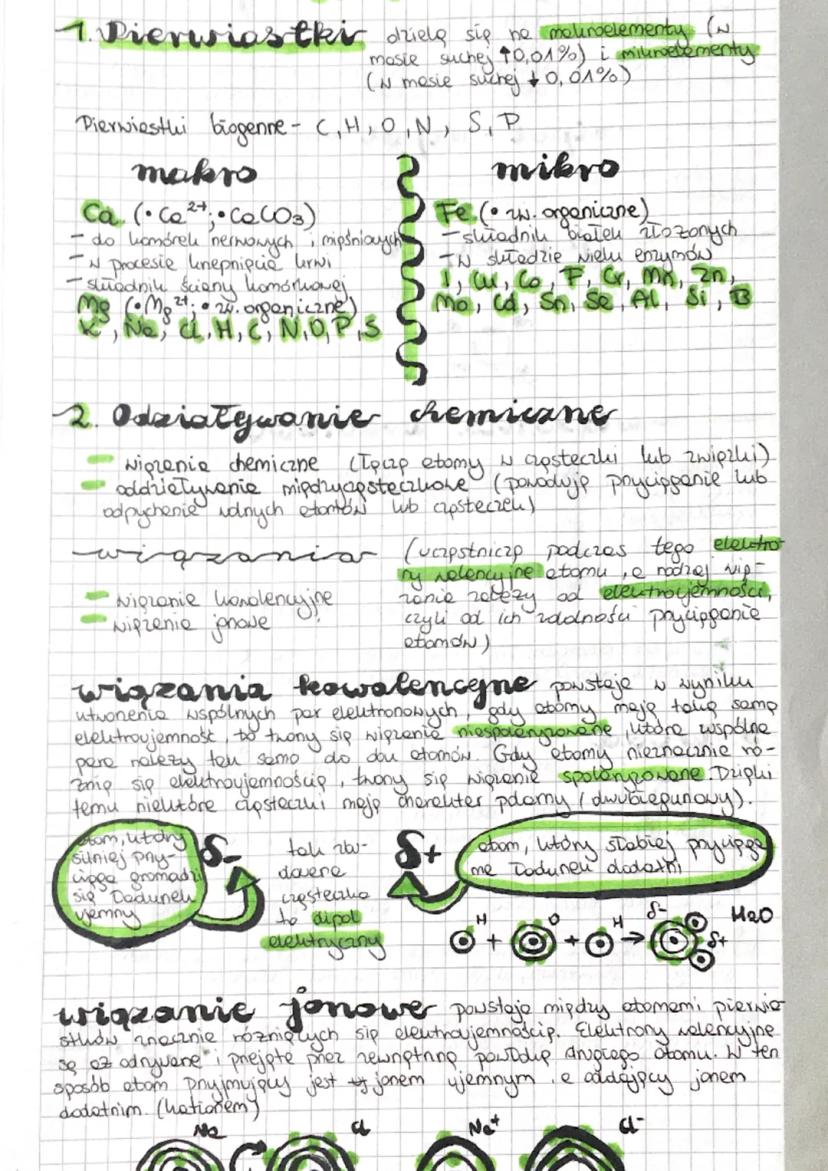 1. Pierwiastki dzielą się na makroelementy (w
masie suchej ↑0,01%) i mikroelementy
(w masie suchej ↓0,01%)
Pierwiastki biogenne - C, H, O, N, S, P
makro
Ca (•Ca²⁺; •CaCO3)
- do komórek nerwowych i mięśniowych
- w procesie krzepnięcia krwi
- składnik ściany komórkowej
Mg (•Mg²⁺; •zw. organiczne)
K, Na, Cl, H, C, N, O, P, S
mikro
Fe (•zw. organiczne)
- składnik białek złożonych
- w składzie wielu enzymów
I, Cu, Co, F, Cr, Mn, Zn,
Mo, Cd, Sn, Se, Al, Si, B
2. Odziaływanie chemiczne
- wiązania chemiczne (łączą atomy w cząsteczki lub związki)
- oddziaływania międzycząsteczkowe (powodują przyciąganie lub
odpychanie wolnych atomów lub cząsteczek)
wiązania
- wiązanie kowalencyjne
- wiązanie jonowe
(uczestniczą podczas tego elektro-
ny walencyjne atomu, a rodzaj wią-
zania zależy od elektroujemności,
czyli od ich zdolności przyciągania
atomów)
wiązania kowalencyjne powstaje w wyniku
utworzenia wspólnych par elektronowych, gdy atomy mają taką samą
elektroujemność, to tworzy się wiązanie niespolaryzowane, które wspólna
para należy tak samo do dwu atomów. Gdy atomy nieznacznie ró-
żnią się elektroujemnością, tworzy się wiązanie spolaryzowane. Dzięki
temu niektóre cząsteczki mają charakter polarny (dwubiegunowy).
atom, który
silniej przy-
ciąga gromadzi
się ładunek
ujemny
δ-
tak zbu-
dowana
cząsteczka
to dipol
elektryczny
δ+
atom, który słabiej przyciąga
ma ładunek dodatni
H + O + H → δ- H2O
δ+
wiązanie jonowe powstaje między atomami pierwia-
stków znacznie różniących się elektroujemnością. Elektrony walencyjne
są aż odrywane i przejęte przez zewnętrzną powłokę drugiego atomu. W ten
sposób atom przyjmujący jest jonem ujemnym, a oddający jonem
dodatnim. (kationem)
Na Cl Na⁺ Cl⁻